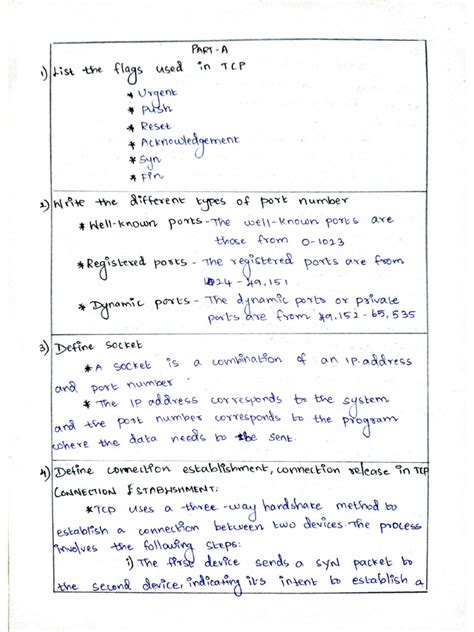 PART-A
1) List the flags used in TCP
* Urgent
* Push
* Reset
* Acknowledgement
* Syn
* Fin
2) Write the different types of port number
* Well-known ports - The well-known ports are
those from 0-1023
* Registered ports - The registered ports are from
1024 - 49,151
* Dynamic ports - The dynamic ports or private
ports are from 49,152 - 65,535
3) Define socket
* A socket is a combination of an IP address
and port number
* The IP address corresponds to the system
and the port number corresponds to the program
where the data needs to be sent.
4) Define connection establishment, connection release in TCP
CONNECTION ESTABLISHMENT:
* TCP uses a three-way handshake method to
establish a connection between two devices. The process
involves the following steps:
i) The first device sends a SYN packet to
the second device, indicating its intent to establish a